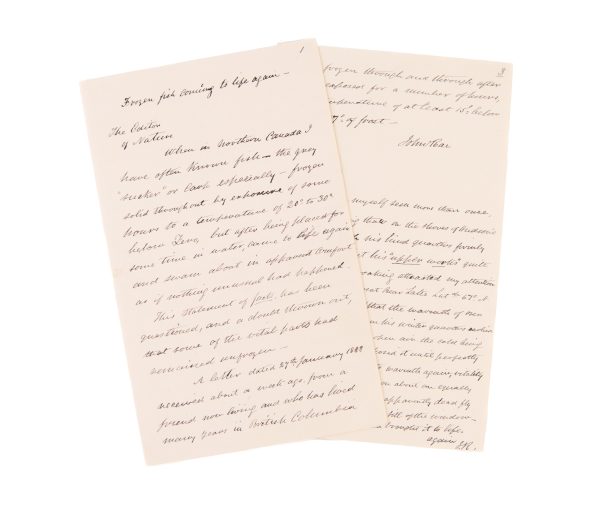 1
Frozen fish coming to life again —
The Editor
of Nature
When in Northern Canada I
have often known fish — the grey
"sucker" or carp especially — frozen
solid throughout by exposure of some
hours to a temperature of 20° to 30°
below Zero, but after being placed for
some time in water, came to life again
and swam about in apparent comfort
as if nothing unusual had happened.
This statement of fact has been
questioned, and a doubt thrown out,
that some of the vital parts had
remained unfrozen —
A letter dated 27th January 1888
received about a week ago, from a
friend now living and who has lived
many years in British Columbia
3
frozen through and through after
exposed for a number of hours,
temperature of at least 15° below
7° of frost —
John Rae
myself seen more than once.
that on the shores of Hudson's
his hind quarters firmly
his upper works quite
croaking attracted my attention
Great Bear Lake Lat 67° N
that the warmth of men
in his winter quarters
air the cold being
it until perfectly
warmth again, vitality
about as equally
apparently dead fly
sill of the window
brought it to life
again J.R.